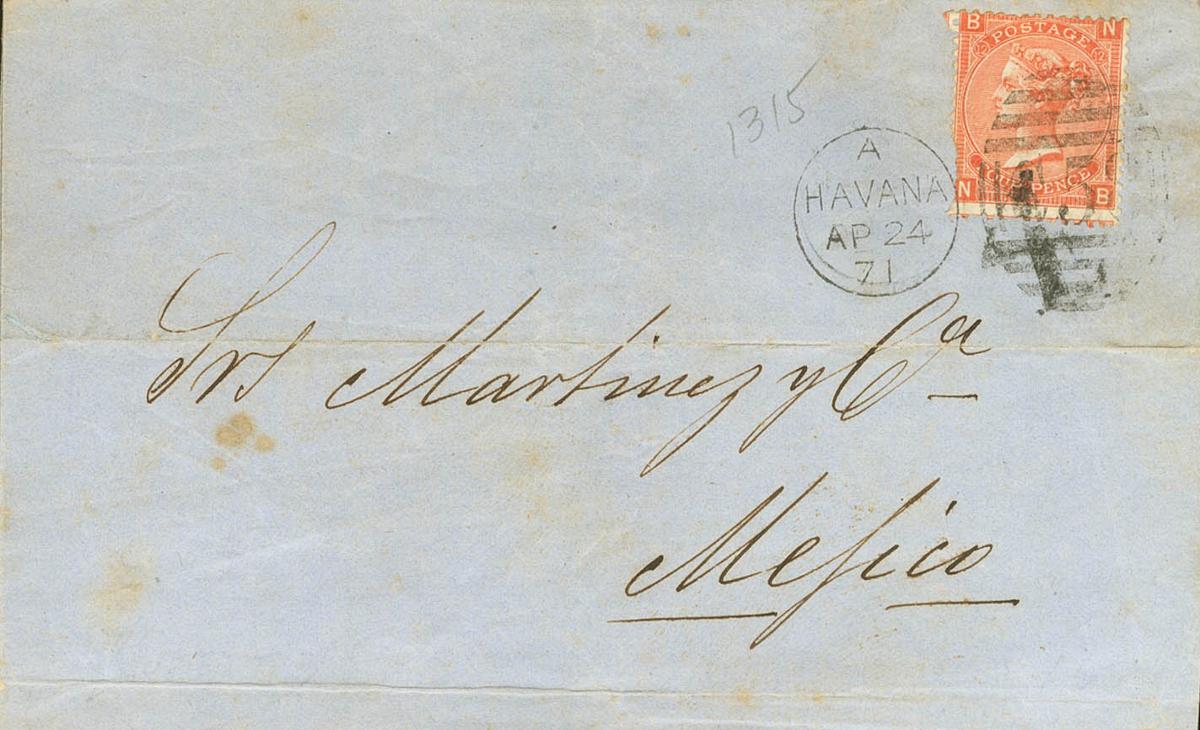 B N
POSTAGE
FOUR PENCE
N B
1315
A
HAVANA
AP 24
71
Srs Martinez y Ca
Mejico